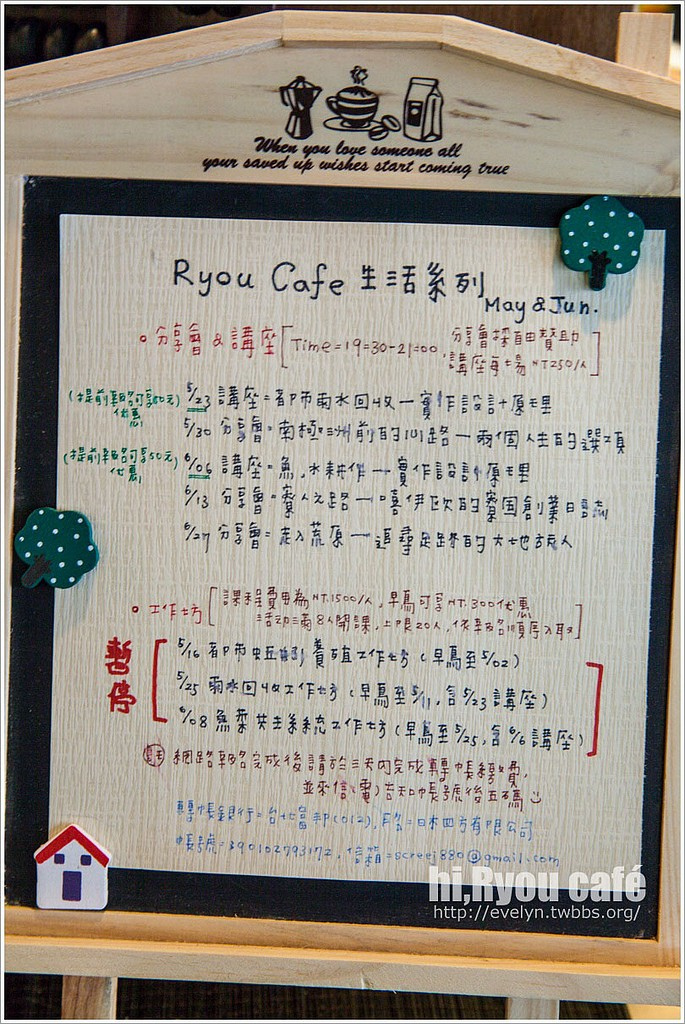 When you love someone all
your saved up wishes start coming true
Ryou Cafe 生活系列
May & Jun.
分享會 & 講座 [Time=19:30-21:00, 分享會採自由贊助
講座每場NT250/人]
(提前報名可享50元優惠) 5/23 講座=都市雨水回收一實作設計+原理
5/30 分享會=南極三洲前的101路一兩個人生的選項
(提前報名可享50元優惠) 6/06 講座=魚,水耕作一實作設計+原理
6/13 分享會=寮人之路一嘻伊歐的寮國創業日誌
6/27 分享會=走入荒原一追尋足跡的大地旅人
工作坊 [課程費用為NT.1500/人,早鳥可享NT.300優惠
活動三兩8人開課,上限20人,依報名順序入取]
暫停
5/16 都市虫丘蚓養殖工作坊(早鳥至5/02)
5/25 雨水回收工作坊(早鳥至5/11,含5/23講座)
6/08 魚菜共生系統工作坊(早鳥至5/25,含6/6講座)
網路報名完成後請於三天內完成轉帳繳費,
並來信(電)告知帳號後五碼
轉帳銀行=台北富邦(012),戶名=日木四方有限公司
帳號=390102793172,信箱=screej880@gmail.com
hi,Ryou café
http://evelyn.twbbs.org/